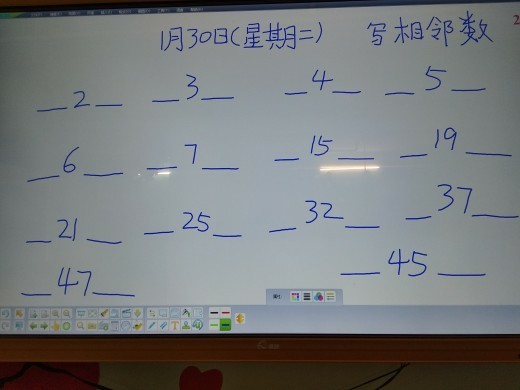 1月30日(星期二) 写相邻数 2
__2__ __3__ __4__ __5__
__6__ __7__ __15__ __19__
__21__ __25__ __32__ __37__
__47__ __45__